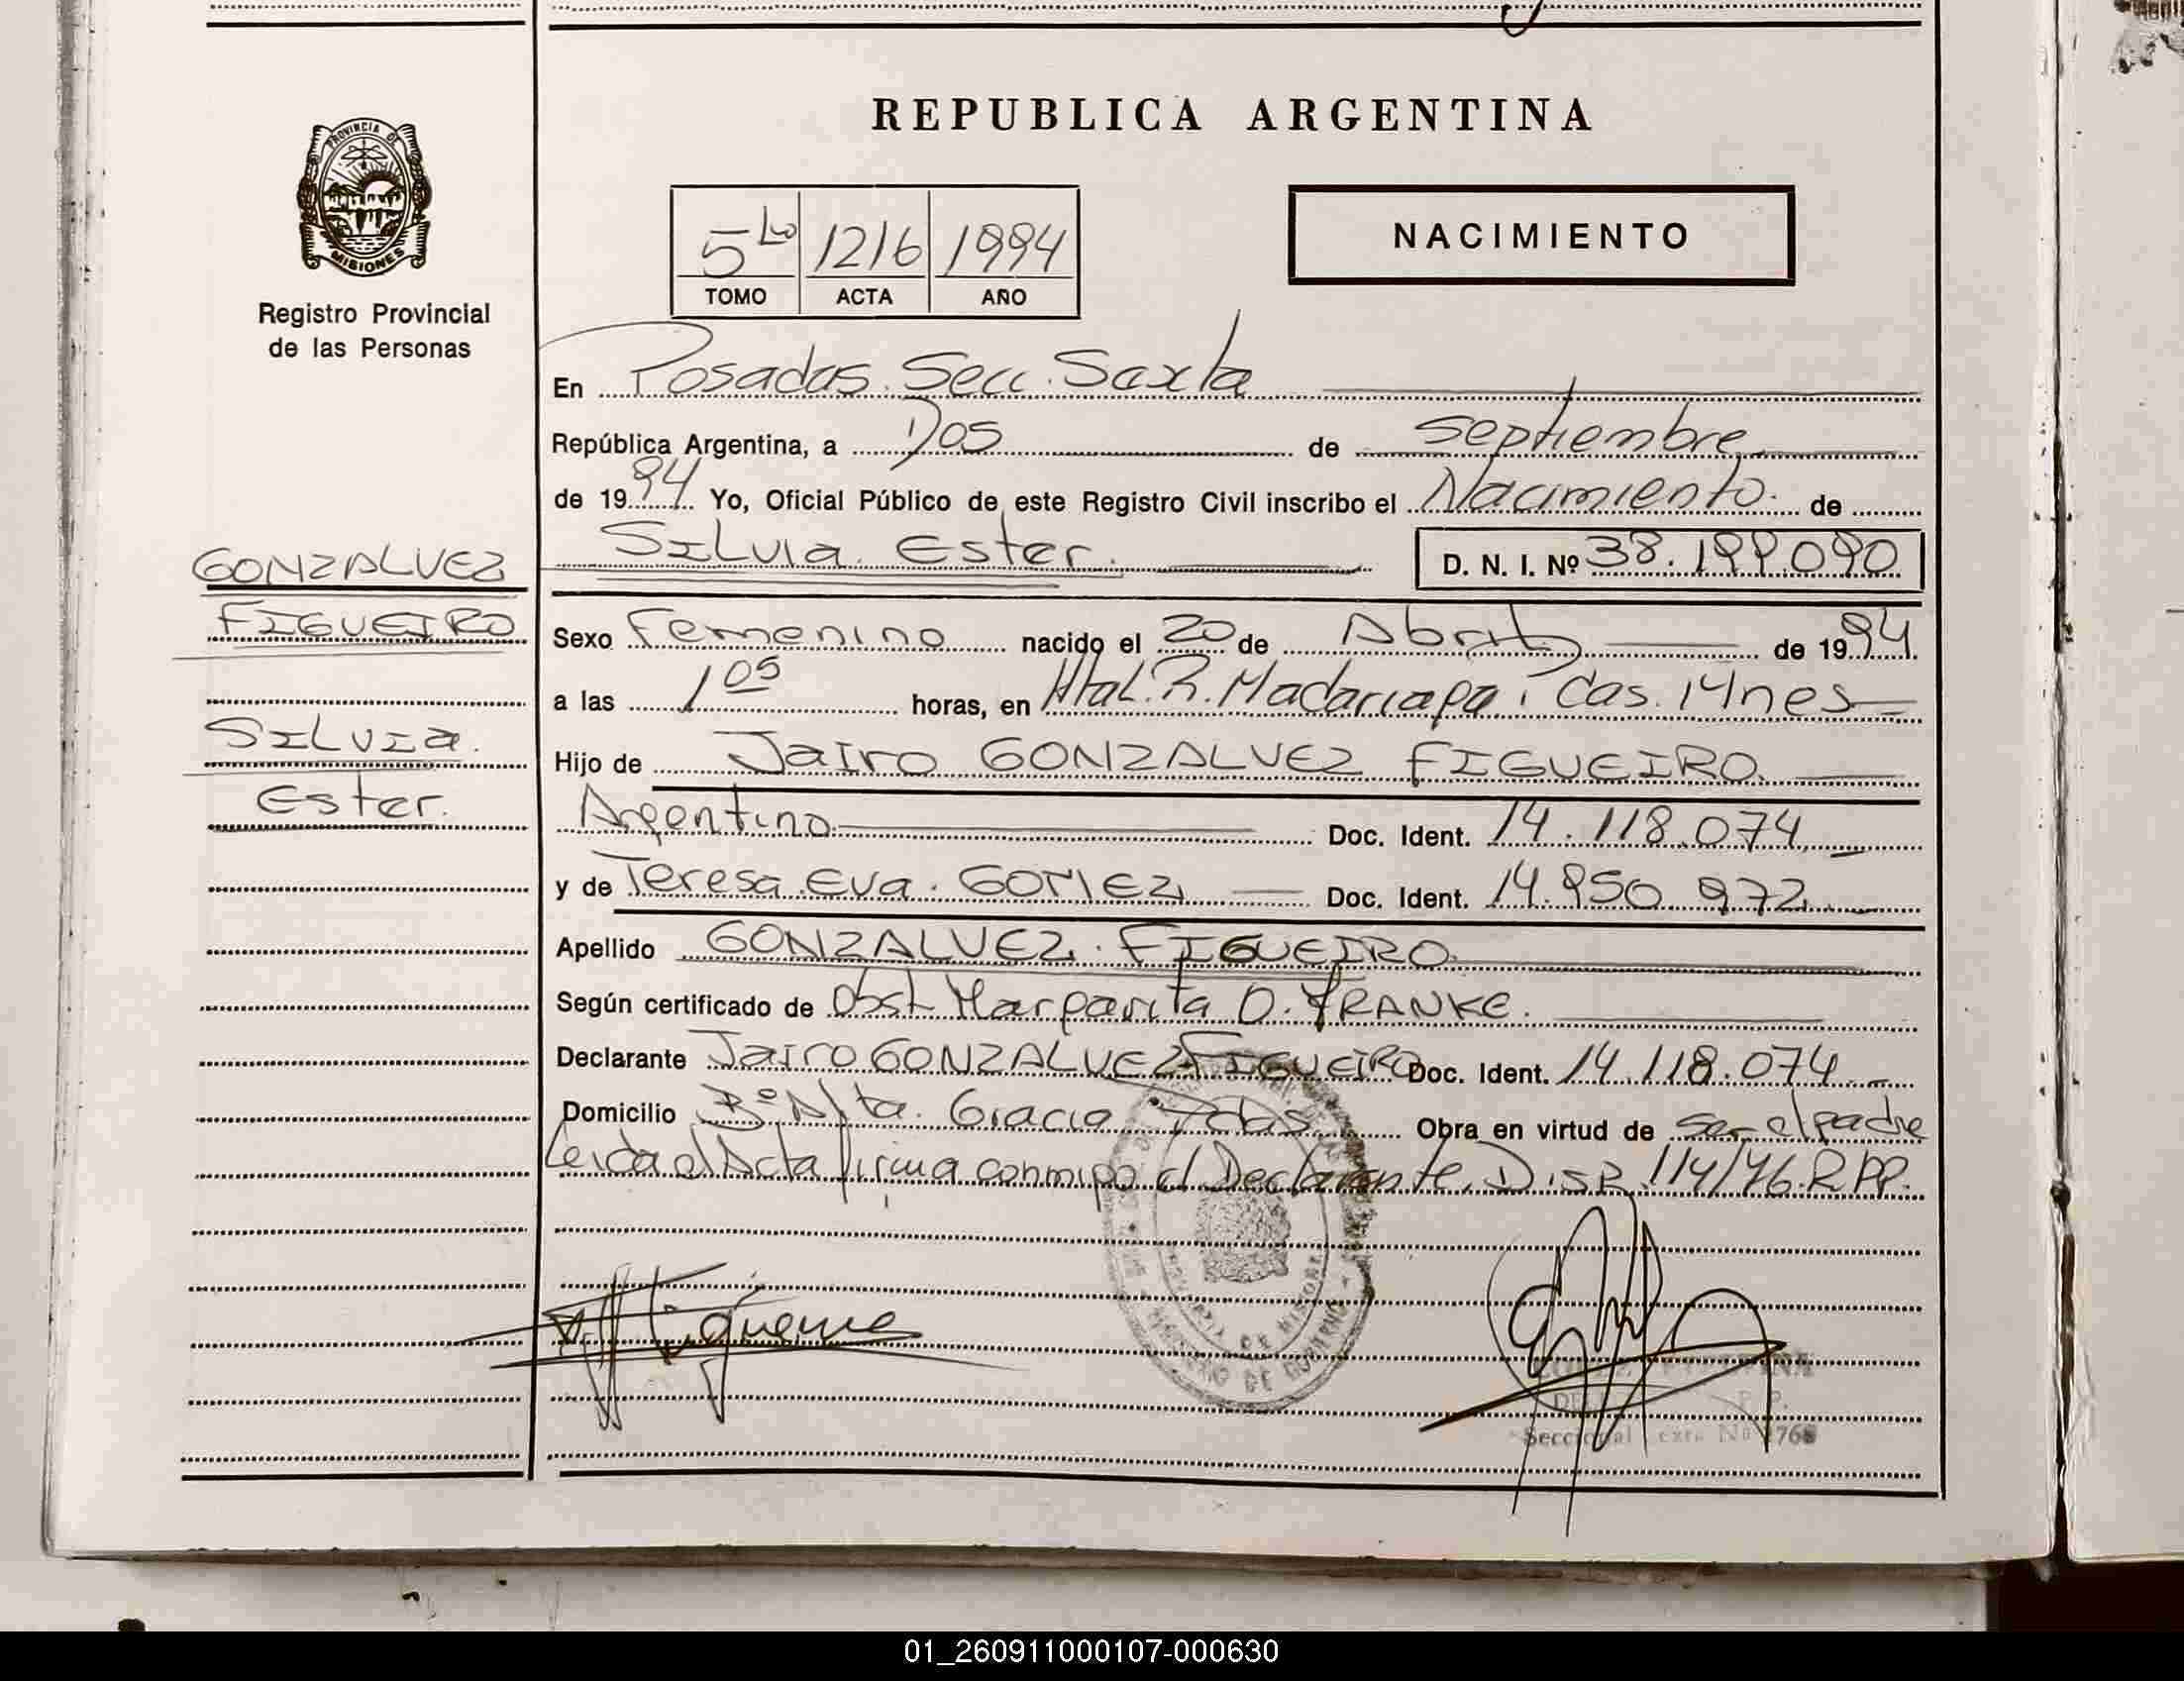 REPUBLICA ARGENTINA
PROVINCIA DE
MISIONES
Registro Provincial
de las Personas
5to 1216 1994
TOMO ACTA AÑO
NACIMIENTO
En Posadas. Secc. Sexta
República Argentina, a Dos de septiembre
de 1994 Yo, Oficial Público de este Registro Civil inscribo el Nacimiento. de
Silvia Ester. D. N. I. Nº 38.199.090
GONZALVEZ
FIGUEIRO
Silvia.
Ester.
Sexo Femenino nacido el 20 de Abril de 1994.
a las 1 05 horas, en Htal. R. Madariaga. Pdas. Mnes
Hijo de Jairo GONZALVEZ FIGUEIRO.
Argentino Doc. Ident. 14.118.074
y de Teresa Eva. GOMEZ Doc. Ident. 14.950.972
Apellido GONZALVEZ. FIGUEIRO
Según certificado de Obst Margarita O. FRANKE.
Declarante Jairo GONZALVEZ FIGUEIRO Doc. Ident. 14.118.074
Domicilio Bº Alta. Gracia Pdas Obra en virtud de ser el padre
Leida el Acta firma conmigo el Declarante. Disp. 114/76. R.P.P.
MINISTERIO DE GOBIERNO
PROVINCIA DE MISIONES
Seccional Sexta
01_260911000107-000630